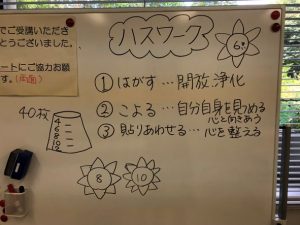 でご受講いただき
とうございました。
ートにご協力お願
す。(両面)
ハスワーク
6
① はがす…開放浄化
② こよる…自分自身を見つめる
心と向きあう
③ 貼りあわせる…心を整える
40枚
4
6
8
10
8
10